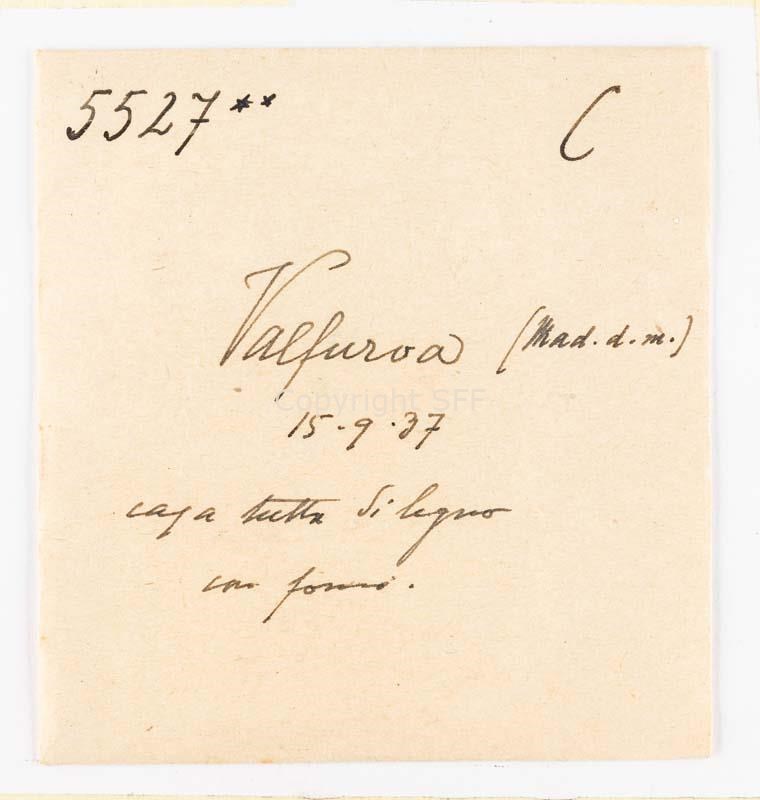 5527** C
Valfurva (Mad. d. m.)
Copyright SFF
15.9.37
casa tutta di legno
con forno.